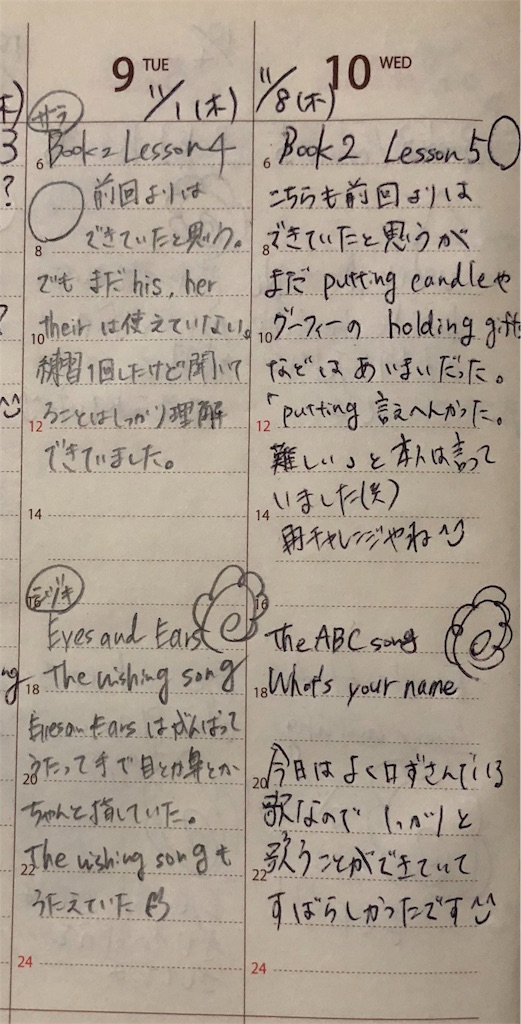 9 TUE
11/1(木)
サラ
6 Book2 Lesson 4
前回よりは
8 できていたと思う。
でもまだ his, her
10 their は使えていない。
練習1回したけど聞いて
12 ることはしっかり理解
できていました。
14
Eyes and Ears
18 The wishing song
Eyes an Ears はがんばって
20 うたって手で目とか鼻とか
ちゃんと指していた。
22 The wishing song も
うたえていた
24
10 WED
11/8(木)
6 Book 2 Lesson 5
こちらも前回よりは
8 できていたと思うが
まだ putting candle や
10 グーフィーの holding gift
などはあいまいだった。
12 「putting 言えへんかった。
難しい」と本人は言って
14 いました(笑)
再チャレンジやね
16
The ABC song
18 What's your name
20 今日はよく口ずさんでいる
歌なので しっかりと
22 歌うことができていて
すばらしかったです
24